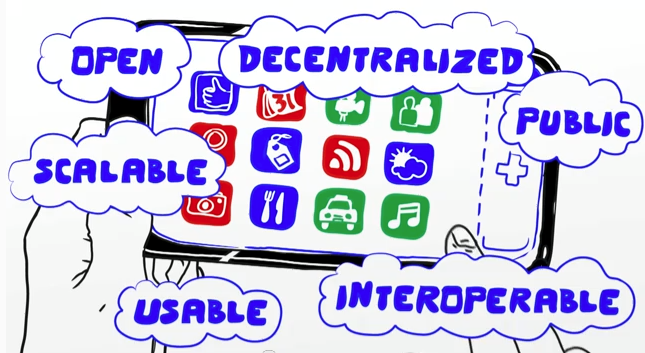 OPEN
DECENTRALIZED
31
PUBLIC
SCALABLE
USABLE
INTEROPERABLE